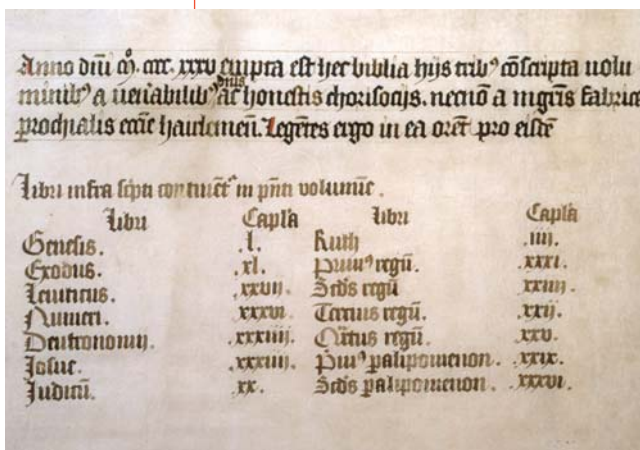 Anno dn̄i mͦ. cccc. xxxv empta est hec biblia hijs tribꝰ cōscripta uolu
dn̄is
minibꝰ a uen̄abilibꝰ ac honestis chorisocijs. necnō a mgr̄is fabrice
ꝑochialis ecc̄ie harlemen̄. Legētes ergo in ea orēt pro eisdē
Libri infra sc̄pti continēt᷑ in pn̄ti volumine.
Libri Capl̄a Libri Capl̄a
Genesis. .l. Ruth .iiij.
Exodus. .xl. Primꝰ regū. .xxxi.
Leuiticus. .xxvij. Scd̄s regū .xxiiij.
Numeri. .xxxvi. Tercius regū. .xxij.
Deutronomij. .xxxiiij. Qͣrtus regū. .xxv.
Josue. .xxxiiij. Pimꝰ ꝑalipomenon. .xxix.
Judicū. .xx. Scd̄s ꝑalipomenon. .xxxvi.